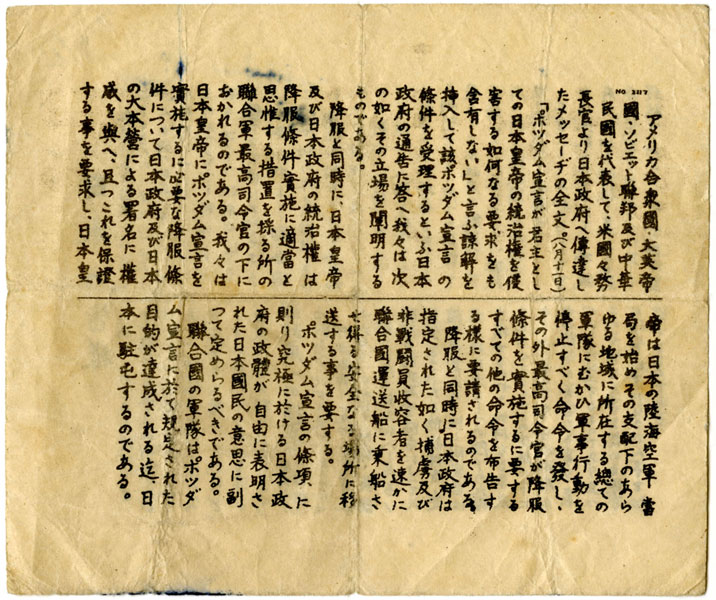 NO 2117
アメリカ合衆國・大英帝
國・ソビエット聯邦及び中華
民國を代表して、米國々務
長官より日本政府へ傳達し
たメッセーヂの全文。(八月十一日)
「ポツダム宣言が君主とし
ての日本皇帝の統治權を侵
害する如何なる要求をも
含有しない」と言ふ諒解を
挿入して該ポツダム宣言の
條件を受理するといふ日本
政府の通告に答へ我々は次
の如くその立場を闡明する
ものである。
降服と同時に、日本皇帝
及び日本政府の統治權は
降服條件實施に適當と
思惟する措置を採る所の
聯合軍最高司令官の下に
おかれるのである。我々は
日本皇帝にポツダム宣言を
實施するに必要な降服條
件について日本政府及び日本
の大本營による署名に權
威を與へ、且つこれを保證
する事を要求し、日本皇
帝は日本の陸海空軍當
局を始めその支配下のあら
ゆる地域に所在する總ての
軍隊にむかひ軍事行動を
停止すべく命令を發し、
その外最高司令官が降服
條件を實施するに要する
すべての他の命令を布告す
る樣に要請されるのである。
降服と同時に日本政府は
指定された如く捕虜及び
非戰鬪員收容者を速かに
聯合國運送船に乘船さ
せ得る安全なる場所に移
送する事を要する。
ポツダム宣言の條項に
則り究極に於ける日本政
府の政體が自由に表明さ
れた日本國民の意思に副
つて定めらるべきである。
聯合國の軍隊はポツダ
ム宣言に於て規定された
目的が達成される迄、日
本に駐屯するのである。